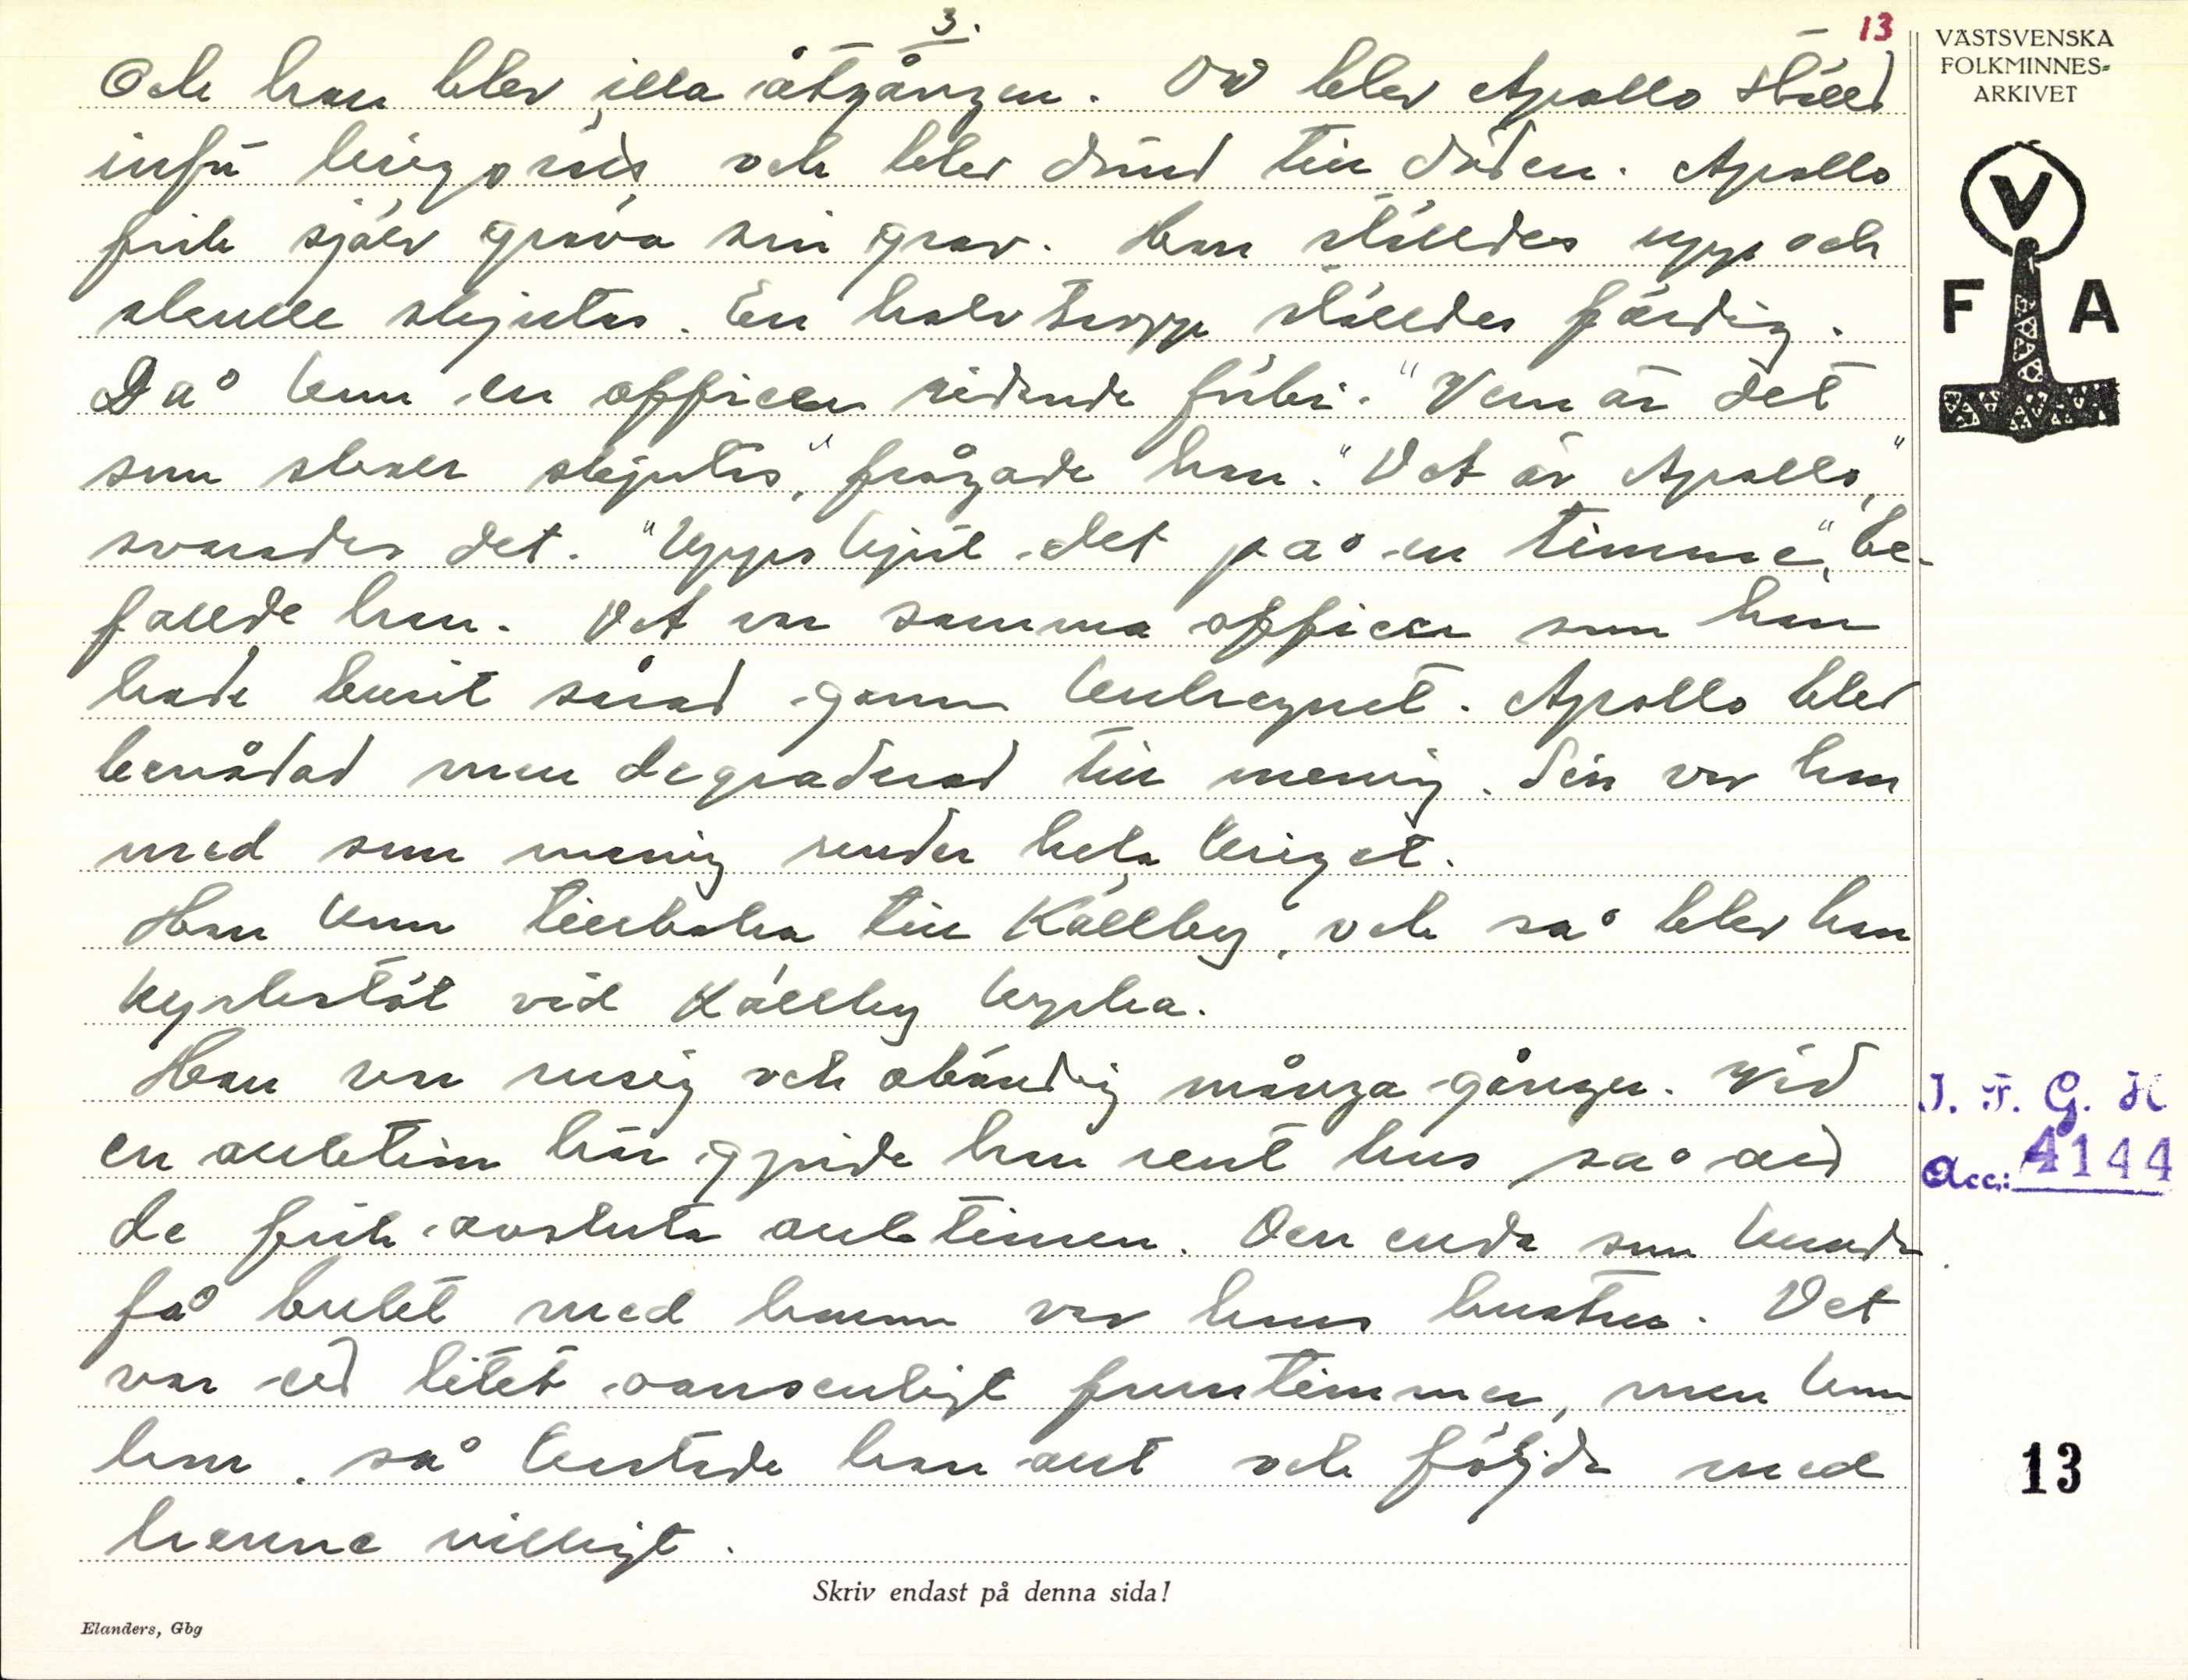 3.
13
Och han blev illa åtgången. Då blev Apollo ställd
inför krigsrätt och blev dömd till döden. Apollo
fick själv gräva sin grav. Han ställdes upp och
skulle skjutas. En halv tropp ställdes färdig.
Då kom en officer ridande förbi. "Vem är det
som skall skjutas", frågade han. "Det är Apollo,"
svarades det. "Uppskjut det på en timme", be-
fallde han. Det var samma officer som han
hade burit sårad genom kulregnet. Apollo blev
benådad men degraderad till menig. Sen var han
med som menig under hela kriget.
Han kom tillbaka till Källby, och så blev han
kyrkstöt vid Källby kyrka.
Han var rusig och obändig många gånger. Vid
en auktion här gjorde han rent hus så att
de fick avsluta auktionen. Den enda som kunde
få bukt med honom var hans hustru. Det
var ett litet oansenligt fruntimmer, men kom
hon, så kastade han allt och följde med
henne villigt.
Skriv endast på denna sida!
Elanders, Gbg
VÄSTSVENSKA
FOLKMINNES-
ARKIVET
V
F A
I. F. G. H
Acc.: 4144
13